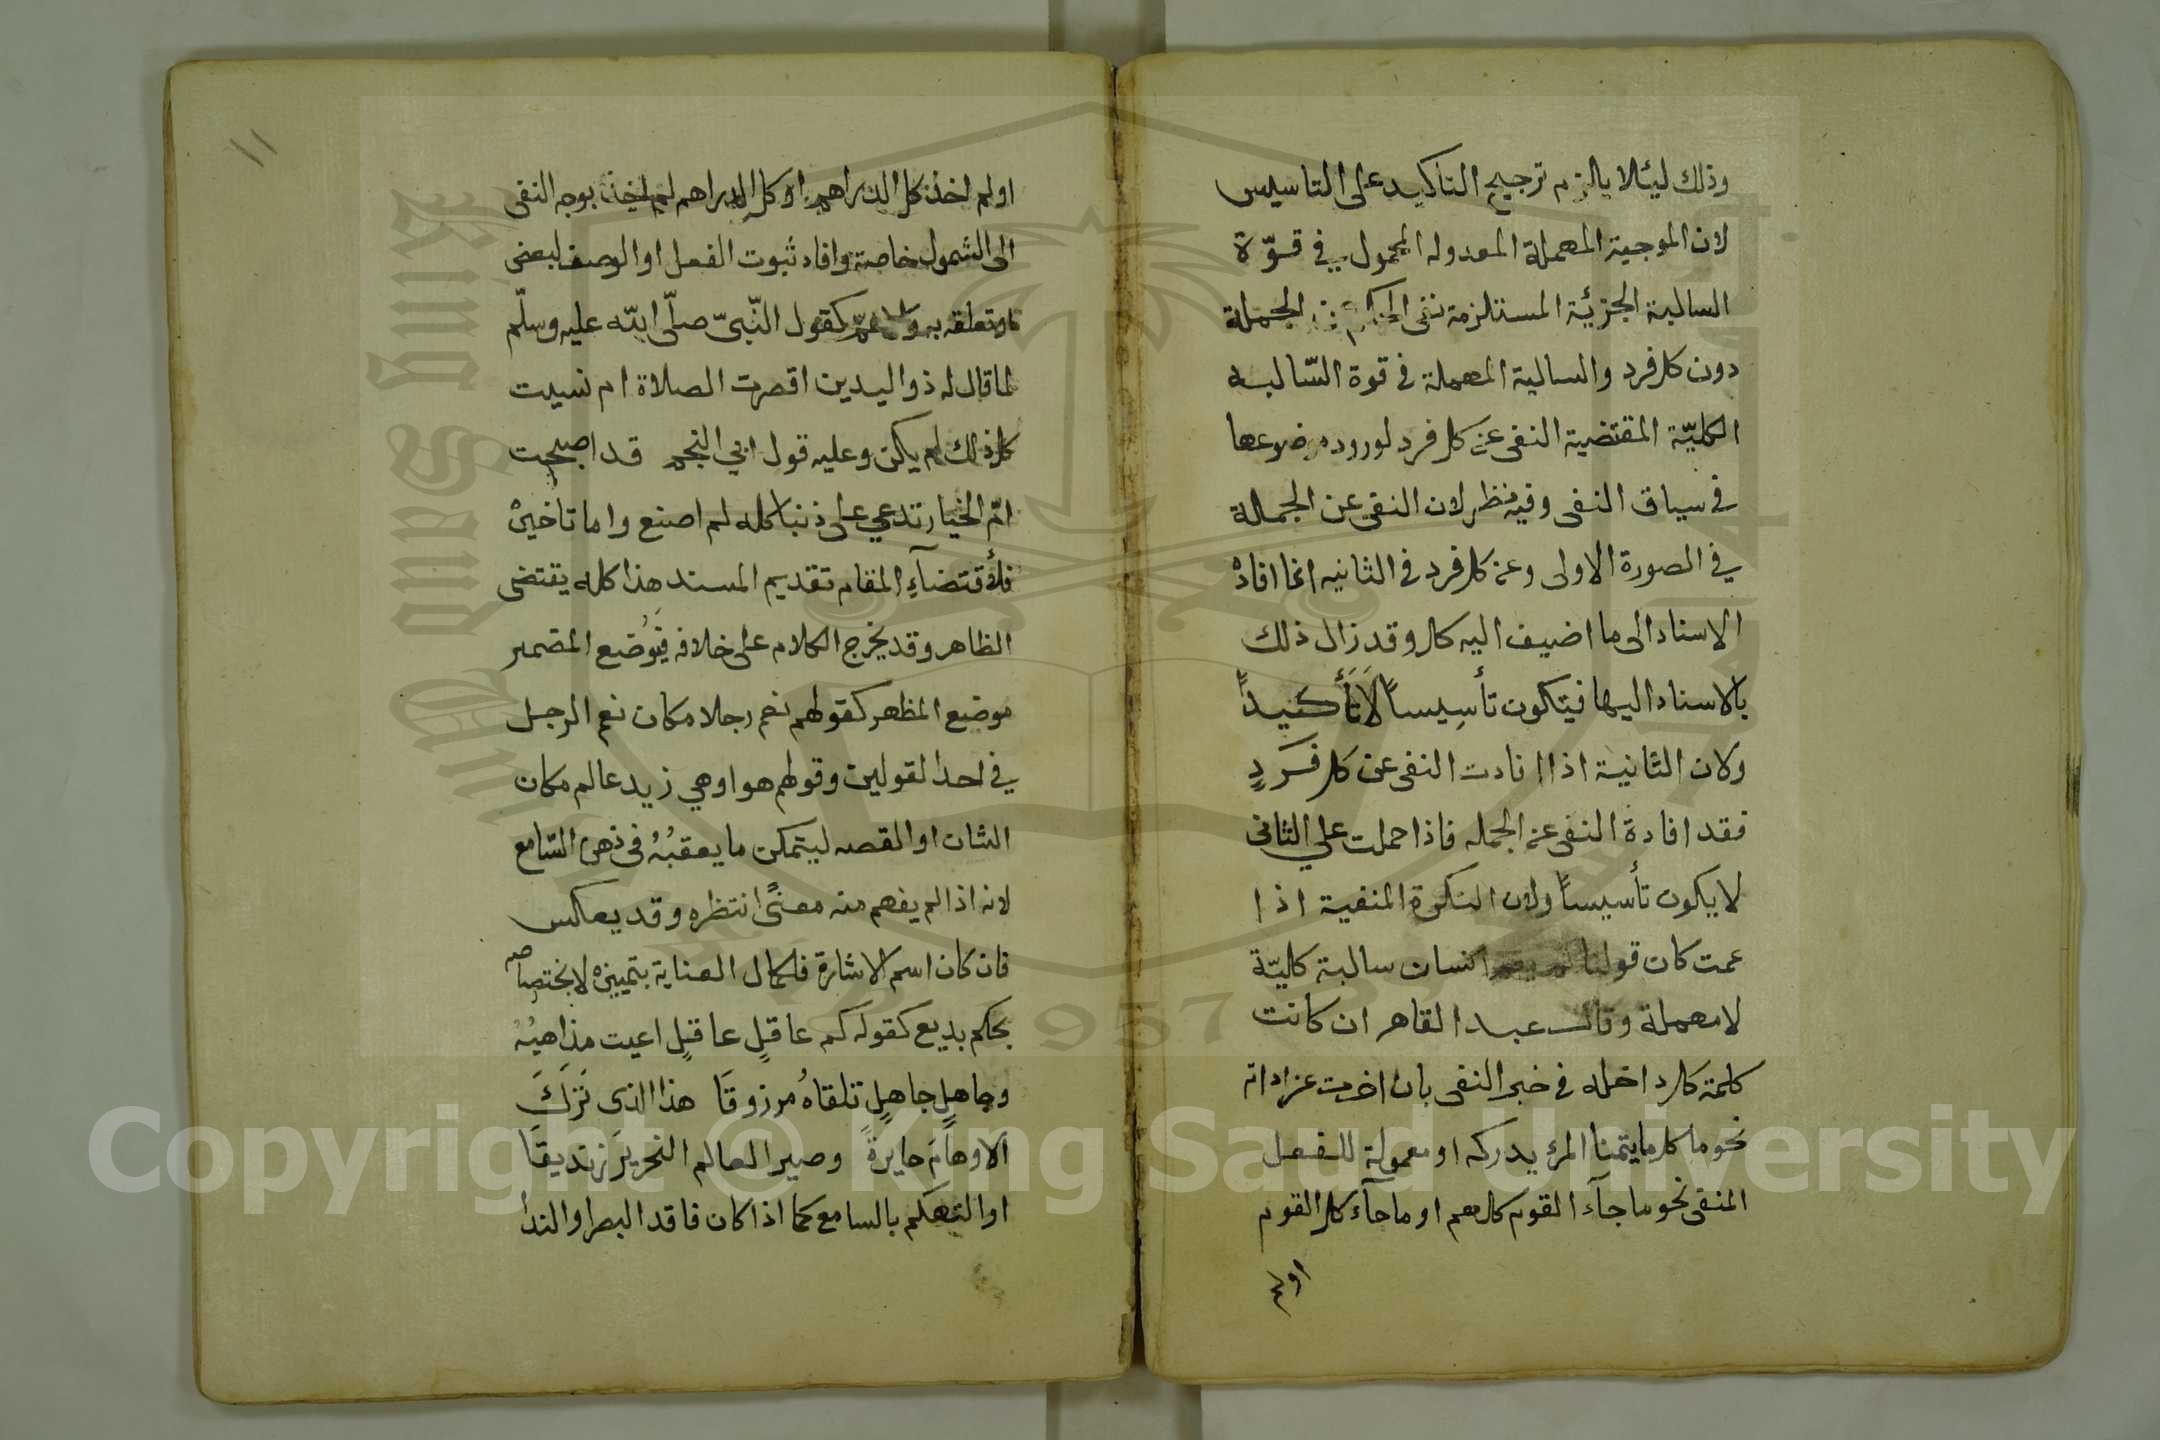 وذلك ليئلا يالزم ترجيح التاكيد على التاسيس
لان الموجبة المهملة المعدوله المحمول في قوّة
السالبة الجزئية المستلزمة نفى الحكم عن الجملة
دون كل فرد والسالبة المهملة في قوة السّالبه
الكليّة المقتضية النفى عن كل فرد لورود موضوعها
في سياق النفى وفيه نظر لان النفى عن الجملة
في الصورة الاولى وعن كل فرد في الثانيه انما افاده
الاسناد الى ما اضيف اليه كل وقد زال ذلك
بالاسناد اليها فيتكون تأسِيساً لَا تَأكيداً
ولان الثانية اذا افادت النفى عن كل فَردٍ
فقد افادة النفى عن الجمله فاذا حملت علي الثانى
لا يكون تأسيساً ولان النكرة المنفية اذا
عمت كان قولنا لم يقم انسان سالبة كليّة
لا مهملة وقال عبد القاهر ان كانت
كلمة كل داخله في خبر النفى بان اخرت عن اداته
نحو ما كل ما يتمنا المرء يدركه او معمولة للفعل
المنفى نحو ما جآء القوم كلهم او ما جآء كل القوم
اولم
١١
اولم اخذ كل الدراهم او كل الدراهم لم اخذ بوجه النفى
الى الشمول خاصة وافاد ثبوت الفعل او الوصف لبعض
او تعلقه به والا عمّ كقول النّبىّ صلّى الله عليه وسلّم
لما قال له ذو اليدين اقصرت الصلاة ام نسيت
كل ذلك لم يكن وعليه قول ابي النجم قد اصبحت
امّ الخيار تدعي على ذنبا كله لم اصنع واما تاخيره
فلأقتضآءِ المقام تقديم المسند هذا كله يقتضى
الظاهر وقد يخرج الكلام على خلافه فيُوضع المضمر
موضع المظهر كقولهم نعم رجلا مكان نعم الرجل
في احد القولين وقولهم هو او هي زيد عالم مكان
الشان او القصه ليتمكن ما يعقبُهُ فى ذهن السّامع
لانه اذا لم يفهم منه معنىً انتظره وقد يعاكس
فان كان اسم الاشارة فلكمال العناية بتمييزه لاختصاصه
بحكم بديع كقوله كم عاقلٍ عاقلٍ اعيت مذاهبُهُ
وجاهلٍ جاهلٍ تلقاهُ مرزوقَا هذا الذى تَركَ
الاوهامَ حايرةً وصير العالم النحريرَ زنديقَا
او التهكم بالسامع كما اذا كان فاقد البصر او الندأ